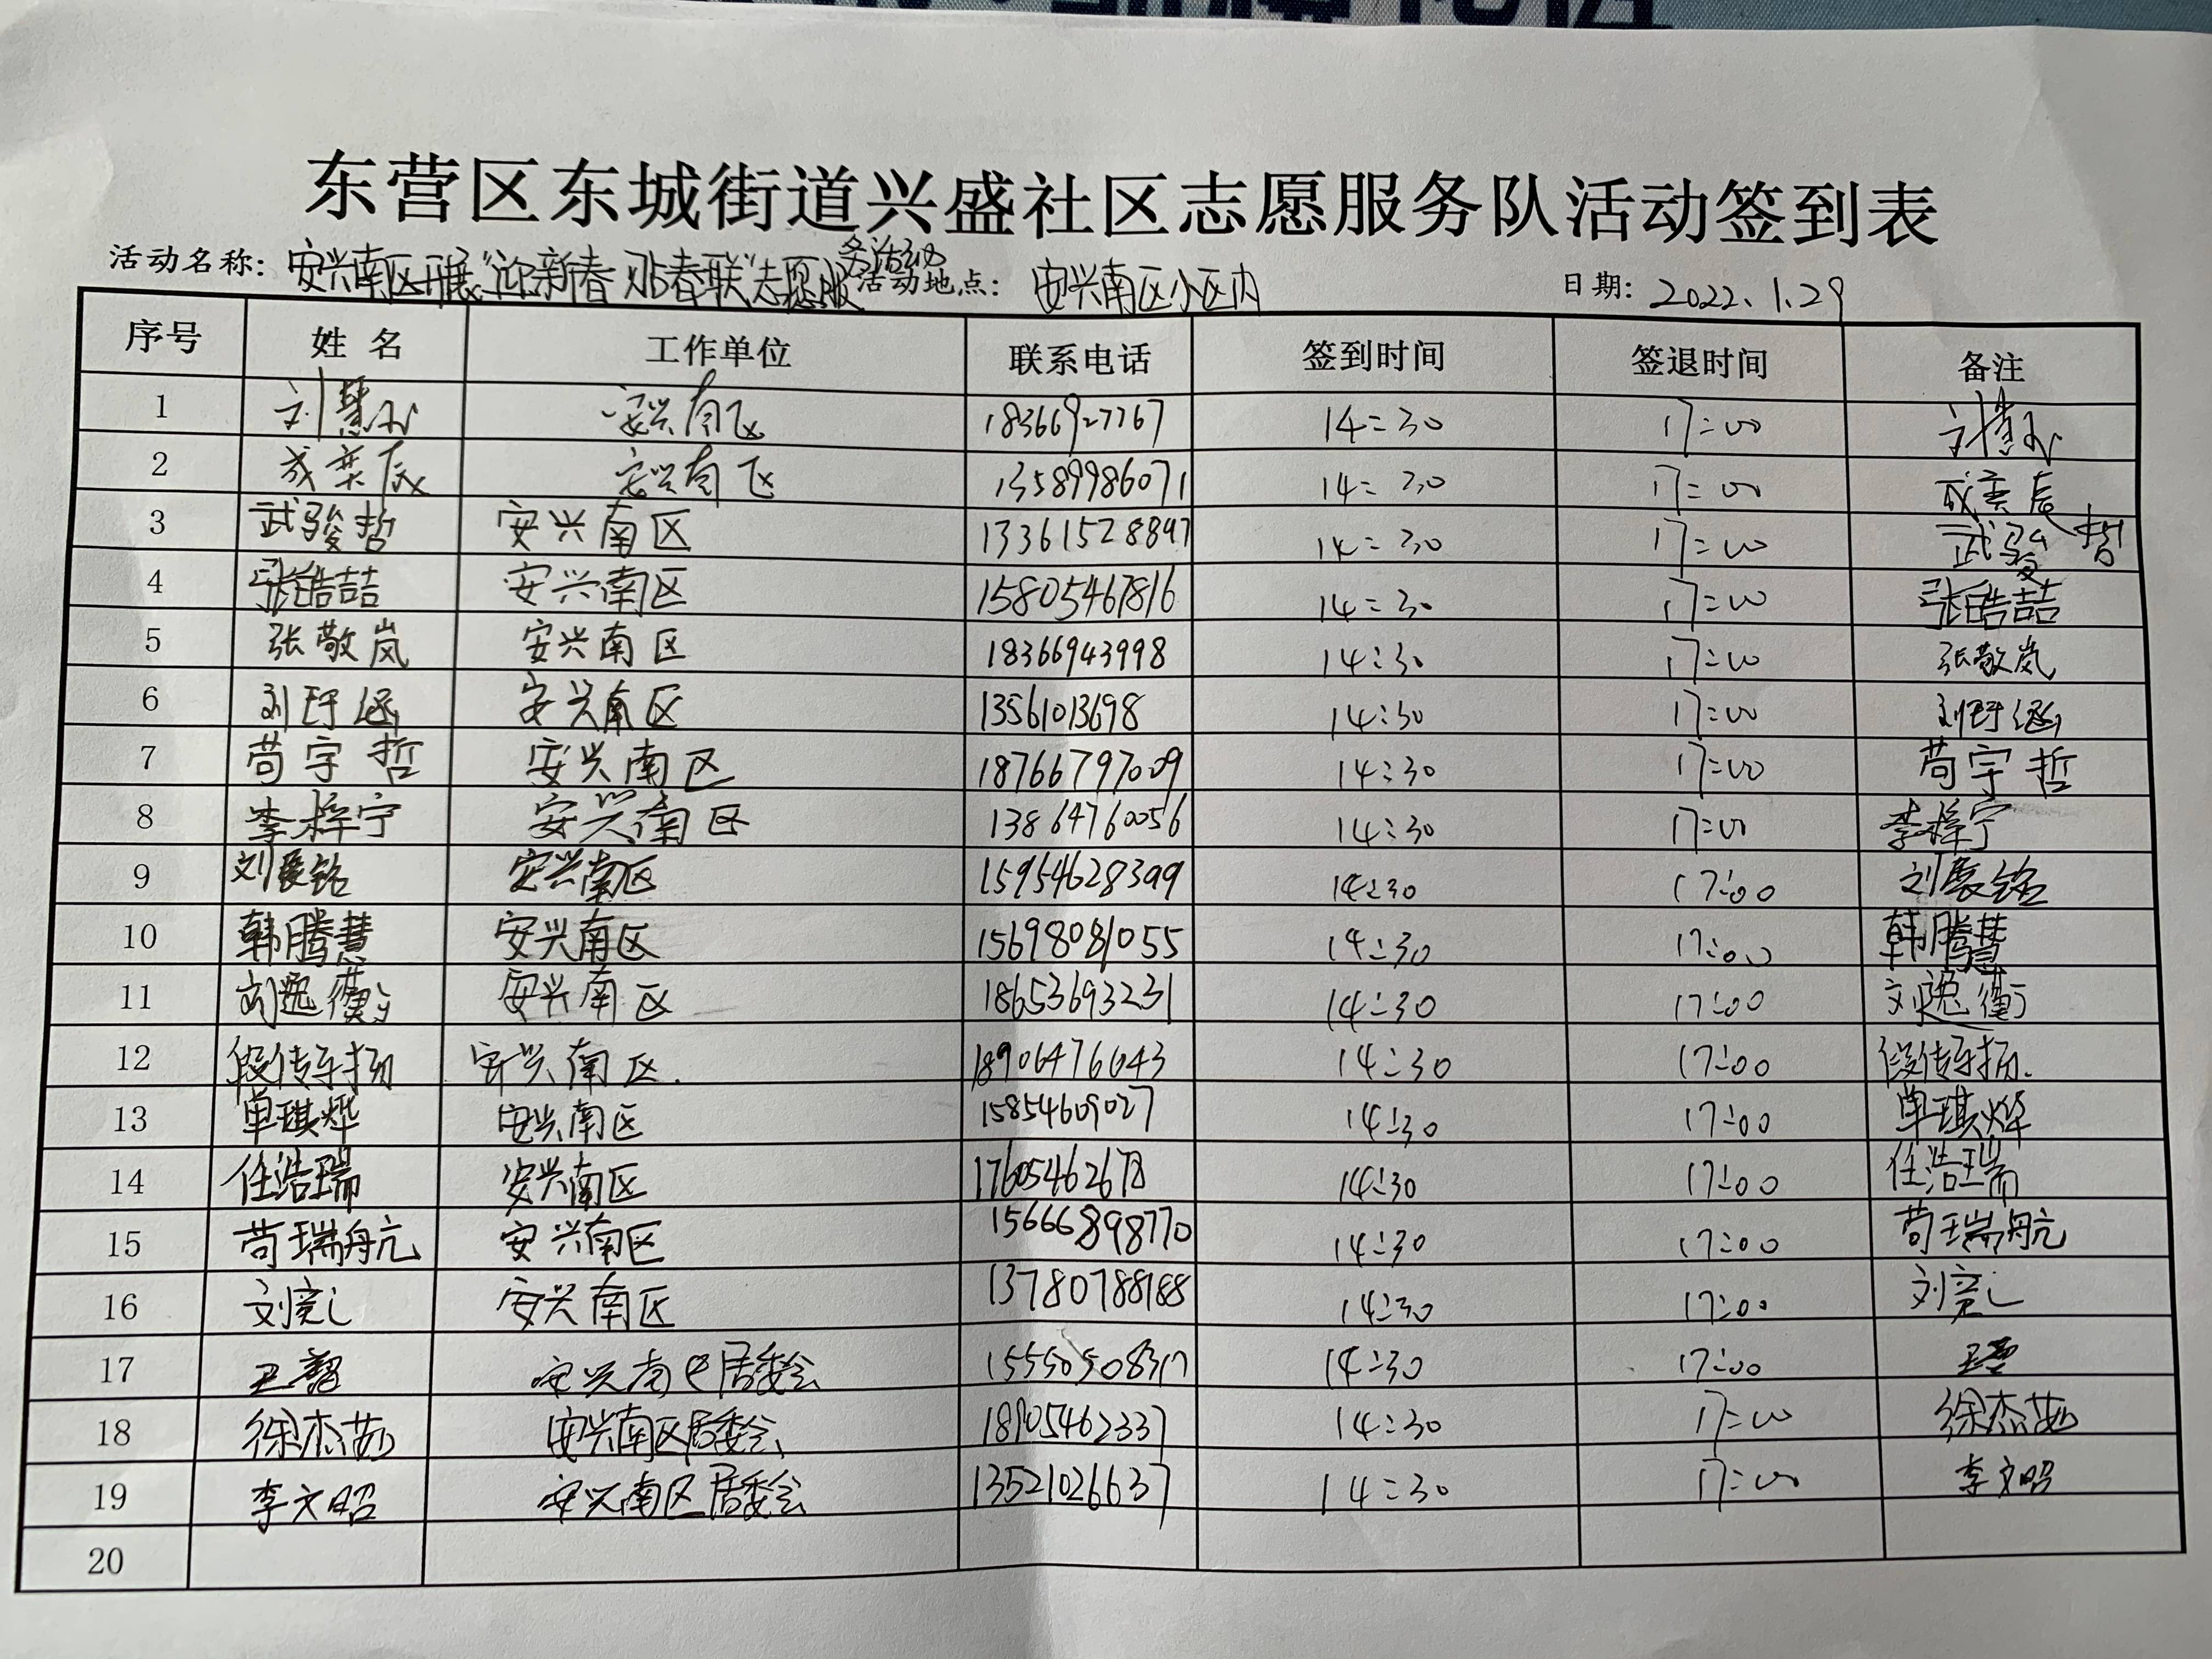 东营区东城街道兴盛社区志愿服务队活动签到表
活动名称：安兴南区开展“迎新春 贴春联”志愿服务活动 活动地点：安兴南区小区内 日期：2022.1.29
序号 姓名 工作单位 联系电话 签到时间 签退时间 备注
1 刘慧 安兴南区 18366927767 14:30 17:00 刘慧
2 成奕辰 安兴南区 13589986071 14:30 17:00 成奕辰
3 武骏哲 安兴南区 13361528897 14:30 17:00 武骏哲
4 张皓喆 安兴南区 15805467816 14:30 17:00 张皓喆
5 张敬岚 安兴南区 18366943998 14:30 17:00 张敬岚
6 刘玗涵 安兴南区 13561013698 14:30 17:00 刘玗涵
7 苟宇哲 安兴南区 18766797009 14:30 17:00 苟宇哲
8 李梓宁 安兴南区 13864760056 14:30 17:00 李梓宁
9 刘展铭 安兴南区 15954628399 14:30 17:00 刘展铭
10 韩腾慧 安兴南区 15698081055 14:30 17:00 韩腾慧
11 刘逸衡 安兴南区 18653693231 14:30 17:00 刘逸衡
12 段传扬 安兴南区. 18906476643 14:30 17:00 段传扬.
13 单琪烨 安兴南区 15854609027 14:30 17:00 单琪烨
14 任浩瑞 安兴南区 17605462678 14:30 17:00 任浩瑞
15 苟瑞航 安兴南区 15666898770 14:30 17:00 苟瑞航
16 刘 安兴南区 13780788188 14:30 17:00 刘
17 王 安兴南区居委会 15550508317 14:30 17:00 王
18 徐杰茹 安兴南区居委会 18905462337 14:30 17:00 徐杰茹
19 李文昭 安兴南区居委会 13521026637 14:30 17:00 李文昭
20